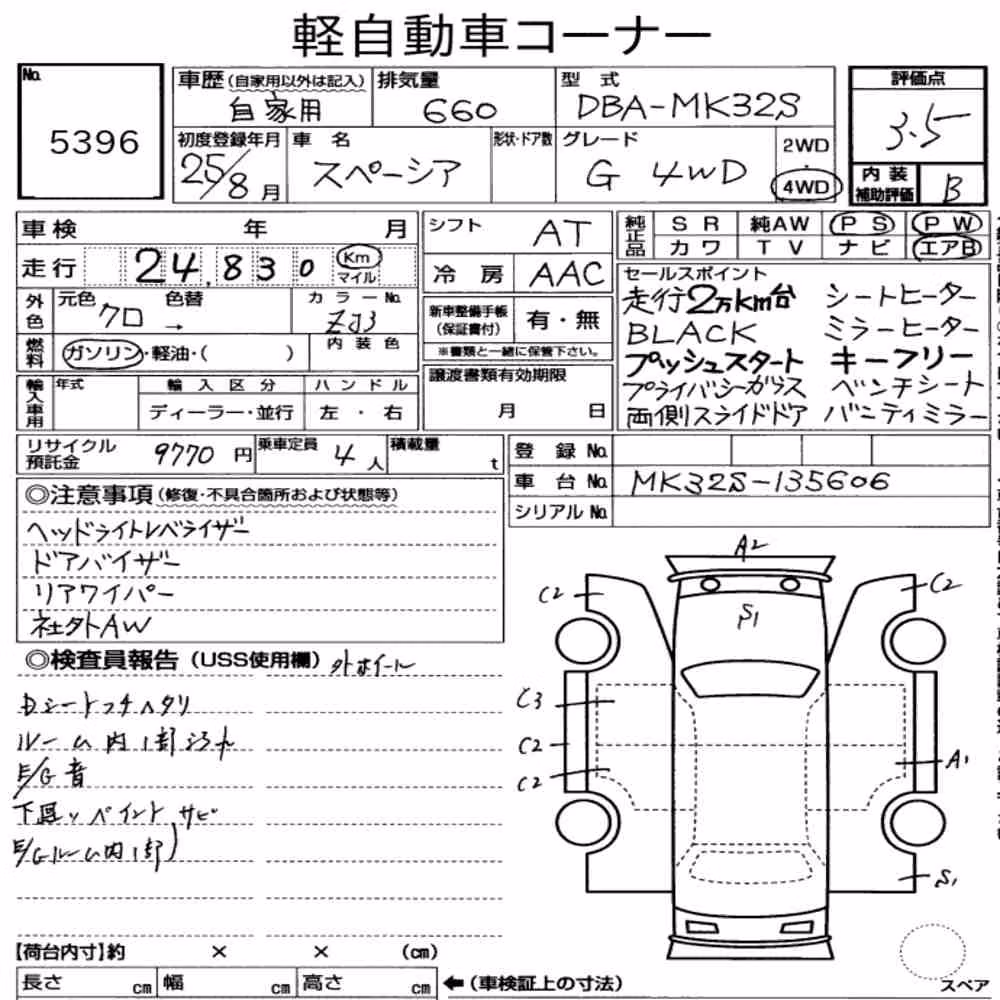 軽自動車コーナー
No. 5396
車歴(自家用以外は記入) 自家用
排気量 660
型式 DBA-MK32S
評価点 3.5
初度登録年月 25/8月
車名 スペーシア
形状・ドア数
グレード G 4WD
2WD
・
4WD
内装補助評価 B
車検 年 月
走行 24,830 Km マイル
シフト AT
冷房 AAC
純正品 SR 純AW PS PW
カワ TV ナビ エアB
外色 元色 クロ → 色替
カラーNo. ZJ3
燃料 ガソリン・軽油・( )
内装色
新車整備手帳(保証書付) 有・無
※書類と一緒に保管下さい。
セールスポイント
走行2万km台 シートヒーター
BLACK ミラーヒーター
プッシュスタート キーフリー
プライバシーガラス ベンチシート
両側スライドドア バニティミラー
輸入車用 年式 輸入区分 ハンドル
ディーラー・並行 左・右
譲渡書類有効期限
月 日
リサイクル預託金 9770円
乗車定員 4人
積載量 t
登録No.
車台No. MK32S-135606
シリアルNo.
◎注意事項(修復・不具合箇所および状態等)
ヘッドライトレベライザー
ドアバイザー
リアワイパー
社外AW
◎検査員報告(USS使用欄) 外ホイール
Dシートフチヘタリ
ルーム内1部汚れ
E/G音
下廻りペイント サビ
E/Gルーム内1部)
A2
S1
C2
C2
C3
C2
C2
A1
S1
【荷台内寸】約 × × (cm)
長さ cm 幅 cm 高さ cm ←(車検証上の寸法)
スペア